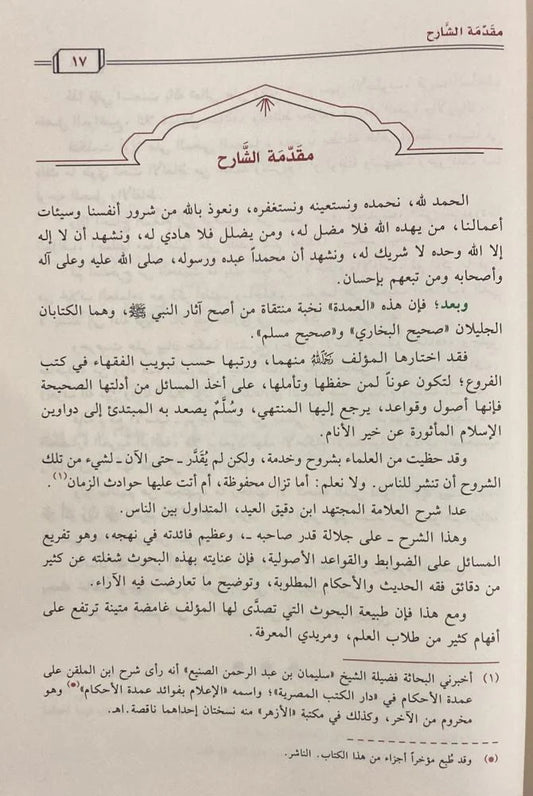 مقَدّمَة الشَّارح
١٧
مقَدّمَة الشَّارح
الحمد لله، نحمده ونستعينه ونستغفره، ونعوذ بالله من شرور أنفسنا وسيئات
أعمالنا، من يهده الله فلا مضل له، ومن يضلل فلا هادي له، ونشهد أن لا إله
إلا الله وحده لا شريك له، ونشهد أن محمداً عبده ورسوله، صلى الله عليه وعلى آله
وأصحابه ومن تبعهم بإحسان.
وبعد؛ فإن هذه «العمدة» نخبة منتقاة من أصح آثار النبي ﷺ، وهما الكتابان
الجليلان «صحيح البخاري» و«صحيح مسلم».
فقد اختارها المؤلف رَحِمَهُ اللَّهُ منهما، ورتبها حسب تبويب الفقهاء في كتب
الفروع؛ لتكون عوناً لمن حفظها وتأملها، على أخذ المسائل من أدلتها الصحيحة
فإنها أصول وقواعد، يرجع إليها المنتهي، وسُلَّمٌ يصعد به المبتدئ إلى دواوين
الإسلام المأثورة عن خير الأنام.
وقد حظيت من العلماء بشروح وخدمة، ولكن لم يُقَدَّر ـ حتى الآن ـ لشيء من تلك
الشروح أن تنشر للناس. ولا نعلم: أما تزال محفوظة، أم أتت عليها حوادث الزمان(١).
عدا شرح العلامة المجتهد ابن دقيق العيد، المتداول بين الناس.
وهذا الشرح ـ على جلالة قدر صاحبه ـ، وعظيم فائدته في نهجه، وهو تفريع
المسائل على الضوابط والقواعد الأصولية، فإن عنايته بهذه البحوث شغلته عن كثير
من دقائق فقه الحديث والأحكام المطلوبة، وتوضيح ما تعارضت فيه الآراء.
ومع هذا فإن طبيعة البحوث التي تصدَّى لها المؤلف غامضة متينة ترتفع على
أفهام كثير من طلاب العلم، ومريدي المعرفة.
(١) أخبرني البحاثة فضيلة الشيخ «سليمان بن عبد الرحمن الصنيع» أنه رأى شرح ابن الملقن على
عمدة الأحكام في «دار الكتب المصرية»؛ واسمه «الإعلام بفوائد عمدة الأحكام»(●) وهو
مخروم من الآخر، وكذلك في مكتبة «الأزهر» منه نسختان إحداهما ناقصة.اهـ.
(●) وقد طُبع مؤخراً أجزاء من هذا الكتاب. الناشر.